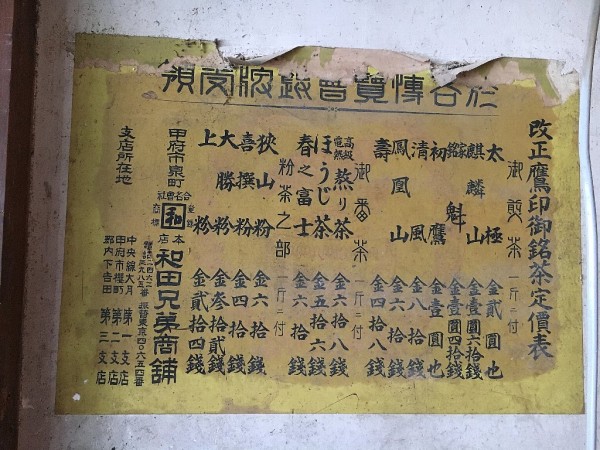 改正鷹印御銘茶定價表
御煎茶 一斤ニ付
太極 金貳圓也
麒麟山 金壹圓六拾錢
魁 金壹圓四拾錢
初鷹 金壹圓也
清風 金八拾錢
鳳凰山 金六拾錢
壽 金四拾八錢
御番茶 一斤ニ付
高級電熱 熬り茶 金六拾八錢
ほうじ茶 金五拾六錢
春之富士 金六拾錢
粉茶之部 一斤ニ付
狹山粉 金六拾錢
喜撰粉 金四拾錢
大勝粉 金叁拾貳錢
上粉 金貳拾四錢
甲府市泉町 合名會社 登録商標 本店 和田兄弟商舖
支店所在地
中央線大月 第一支店
甲府市櫻町 第二支店
郡内下吉田 第三支店